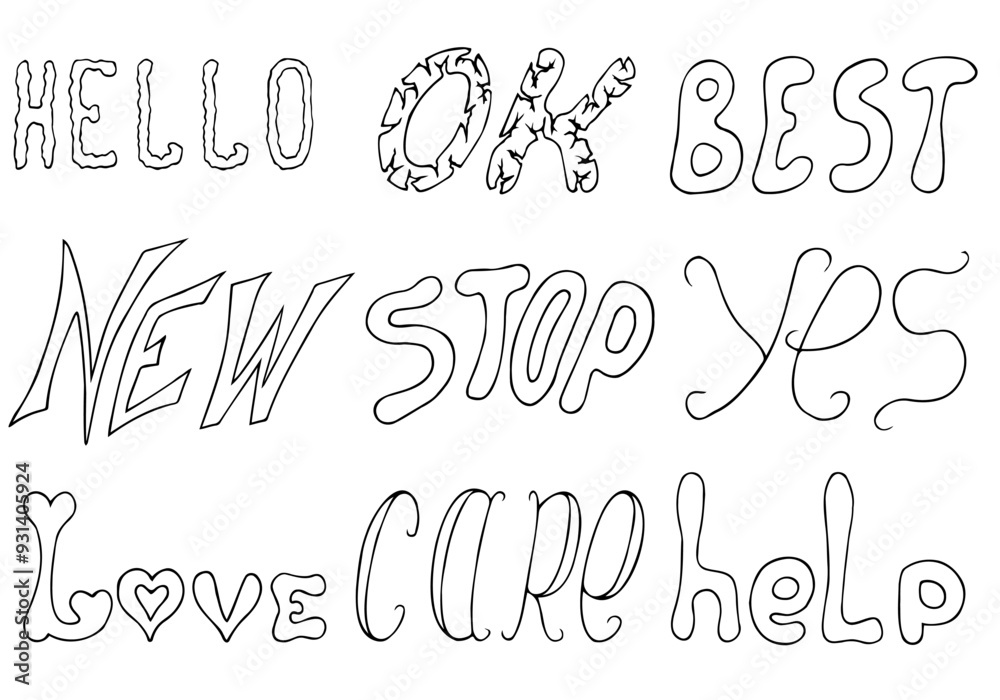 HELLO OK BEST
NEW STOP yes
Love CARe heLp
Adobe Stock | #931405924